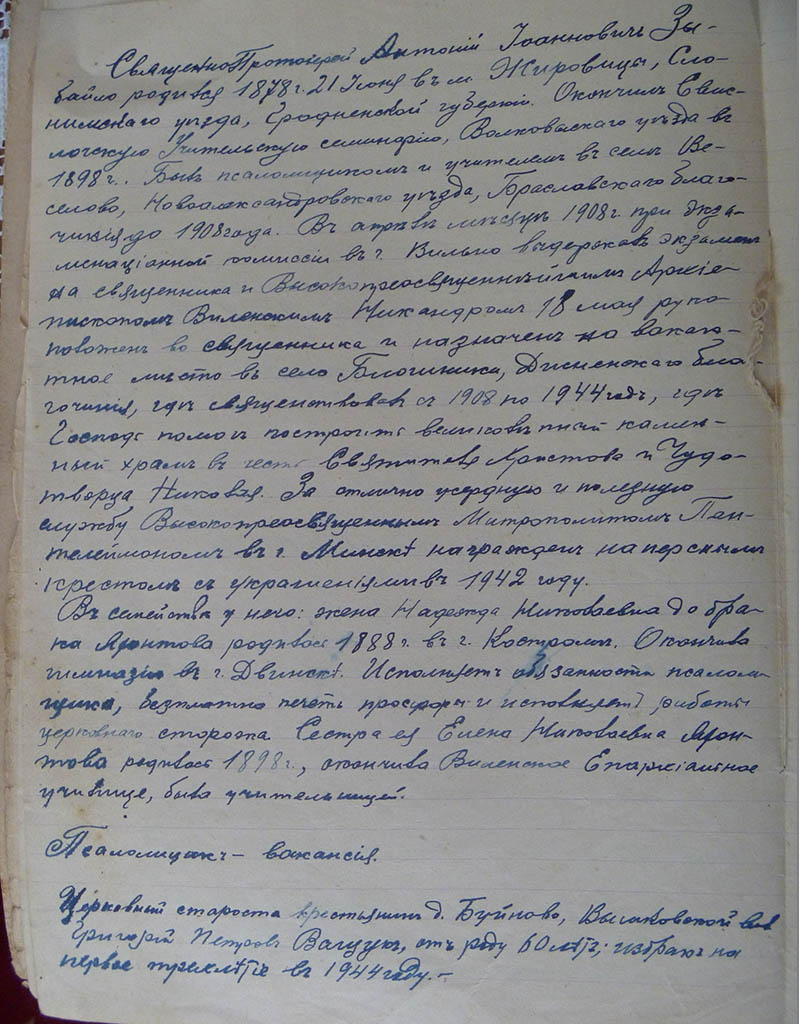 Священно Протоіерей Антоній Іоанновичъ Зы-
байло родился 1878 г. 21 Іюня въ м. Жировицы, Сло-
нимскаго уѣзда, Гродненской губерніи. Окончилъ Свис-
лочскую Учительскую семинарію, Волковыскаго уѣзда въ
1898 г.. Былъ псаломщикомъ и учителемъ въ селѣ Ве-
селово, Новоалександровскаго уѣзда, Браславскаго благо-
чинія до 1908 года. Въ апрѣлѣ мѣсяцѣ 1908 г. при Экза-
менаціонной комиссіи въ г. Вильно выдержалъ экзаменъ
на священника и Высокопреосвященнѣйшимъ Архіе-
пископомъ Виленскимъ Никандромъ 18 мая руко-
положенъ во священника и назначенъ на вакан-
тное мѣсто въ село Блошники, Дисненскаго бла-
гочинія, гдѣ священствовалъ съ 1908 по 1944 годъ, гдѣ
Господь помогъ построить великолѣпный камен-
ный храмъ въ честь Святителя Христова и Чудо-
творца Николая. За отлично усердную и полезную
службу Высокопреосвященнымъ Митрополитомъ Пан-
телеймономъ въ г. Минскѣ награжденъ наперснымъ
крестомъ съ украшеніями въ 1942 году.
Въ семействѣ у него: жена Надежда Николаевна до бра-
ка родилась 1888 г. въ г. Костромѣ. Окончила
гимназію въ г. Двинскѣ. Исполняетъ обязанности псалом-
щика, безплатно печетъ просфоры и исполняетъ работы
церковнаго сторожа Сестра ея Елена Николаевна
родилась 1898 г., окончила Виленское Епархіальное
училище, была учительницей.
Псаломщикъ – вакансія.
Церковный староста крестьянинъ д. Буйново,
Григорій Петровъ отъ роду 60 лѣтъ; избранъ на
первое трехлѣтіе въ 1944 году. –